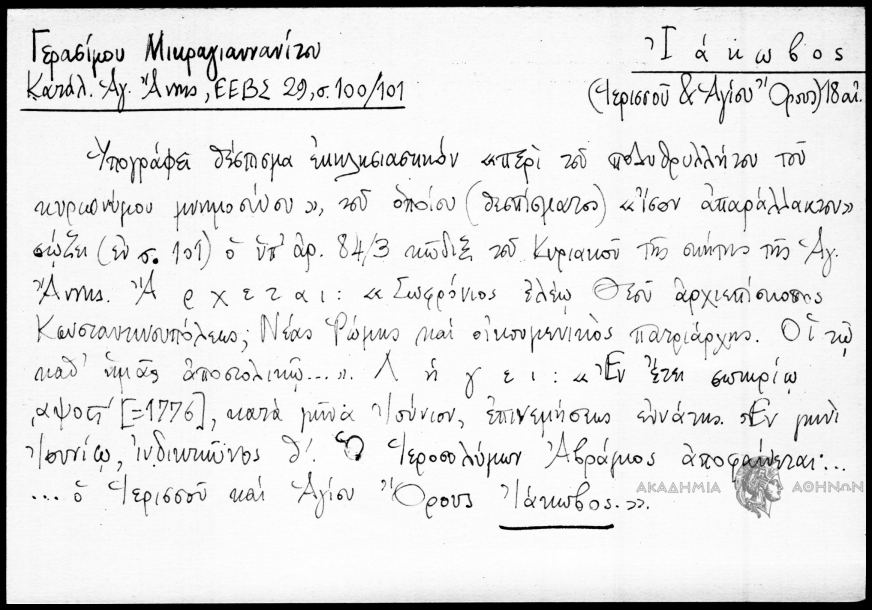 Γερασίμου Μικραγιαννανίτου
Ἰάκωβος
Κατάλ. Ἁγ. Ἄννης, ΕΕΒΣ 29, σ. 100/101
(Ἱερισσοῦ & Ἁγίου Ὄρους) 18 αἰ.
Ὑπογράφει θέσπισμα ἐκκλησιαστικὸν «περὶ τοῦ πολυθρυλλήτου τοῦ
κυριωνύμου μνημοσύνου», τοῦ ὁποίου (θεσπίσματος) «ἴσον ἀπαράλλακτον»
σῴζει (ἐν σ. 101) ὁ ὑπ' ἀρ. 84/3 κῶδιξ τοῦ Κυριακοῦ τῆς σκήτης τῆς Ἁγ.
Ἄννης. Ἄρχεται: «Σωφρόνιος ἐλέῳ Θεοῦ ἀρχιεπίσκοπος
Κωνσταντινουπόλεως, Νέας Ρώμης καὶ οἰκουμενικὸς πατριάρχης. Οἱ τῷ
καθ' ἡμᾶς ἀποστολικῷ...». Λήγει: «Ἐν ἔτει σωτηρίῳ
͵αψοϛʹ [=1776], κατὰ μῆνα Ἰούνιον, ἐπινεμήσεως ἐννάτης. Ἐν μηνὶ
Ἰουνίῳ, ἰνδικτιῶνος θ'. Ὁ Ἱεροσολύμων Ἀβράμιος ἀποφαίνεται...
... ὁ Ἱερισσοῦ καὶ Ἁγίου Ὄρους Ἰάκωβος.».
ΑΚΑΔΗΜΙΑ ΑΘΗΝΩΝ